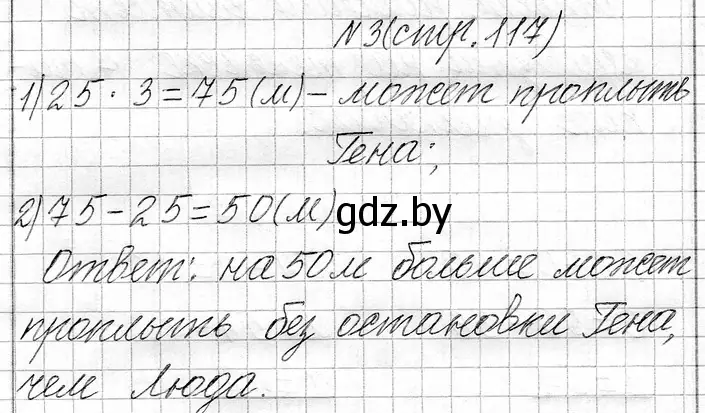 N3(стр.117)
1) 25 · 3 = 75 (м) – может проплыть
Гена;
2) 75 – 25 = 50 (м)
gdz.by
Ответ: на 50 м больше может
проплыть без остановки Гена,
чем Люда.